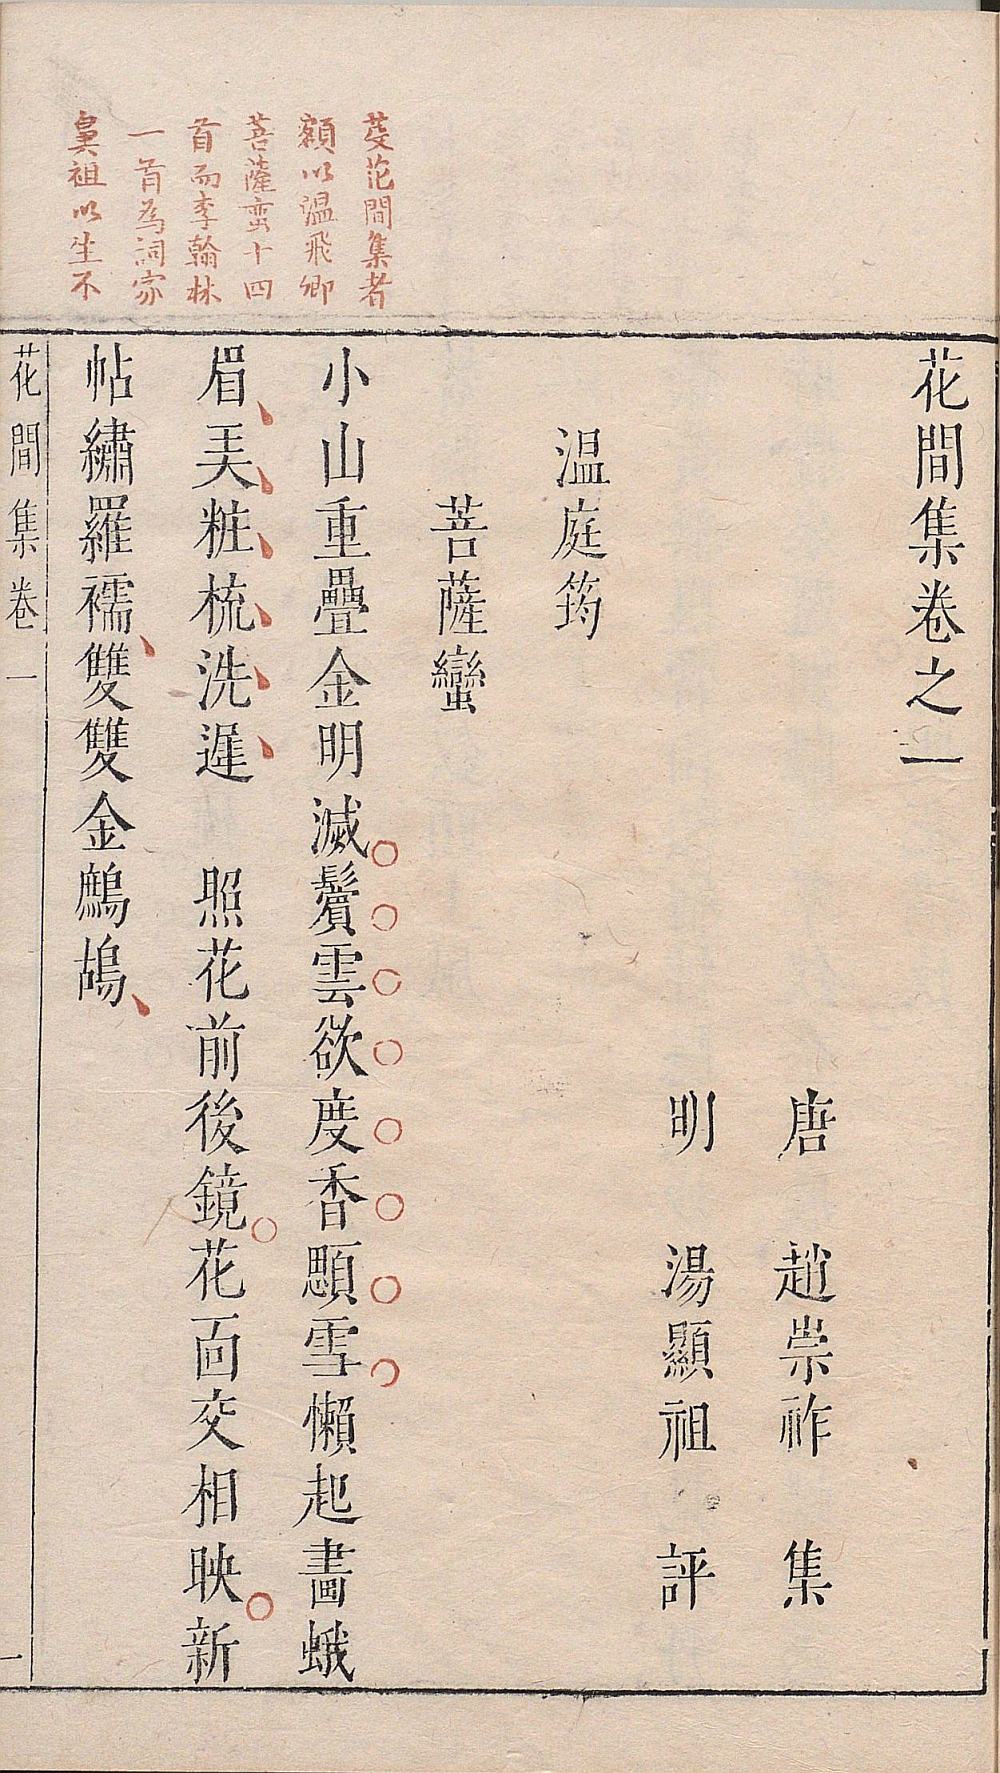 花間集卷之一
唐 趙崇祚 集
明 湯顯祖 評
温庭筠
菩薩蠻
小山重疊金明滅鬢雲欲度香顋雪懶起畫蛾
眉美粧梳洗遲 照花前後鏡花面交相映新
帖繡羅襦雙雙金鷓鴣
花間集卷一
一
芟花間集者
額以温飛卿
菩薩蛮十四
首而李翰林
一首為詞家
鼻祖以生不